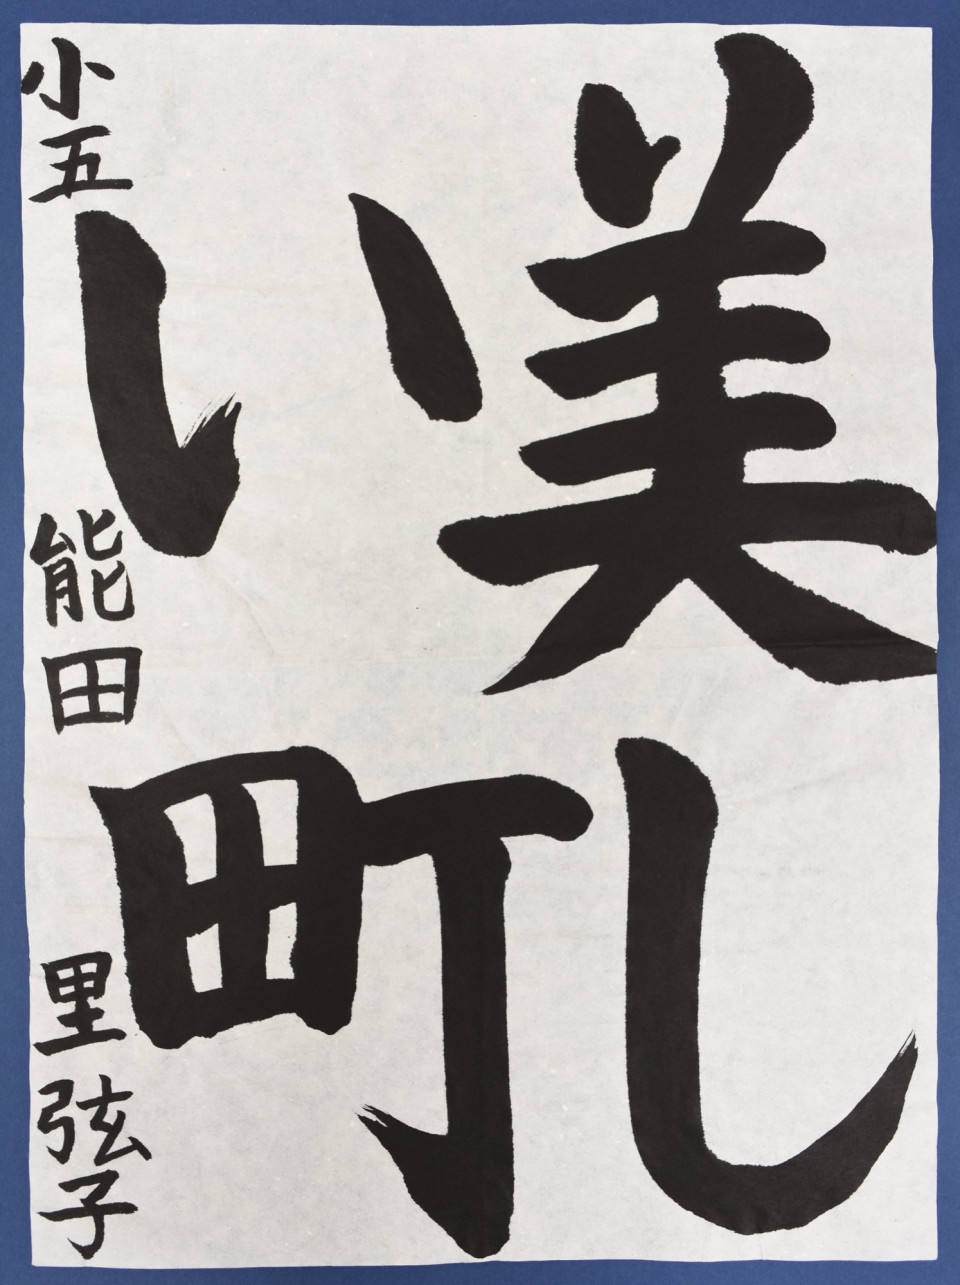 美し
い町
小五 能田 里弦子